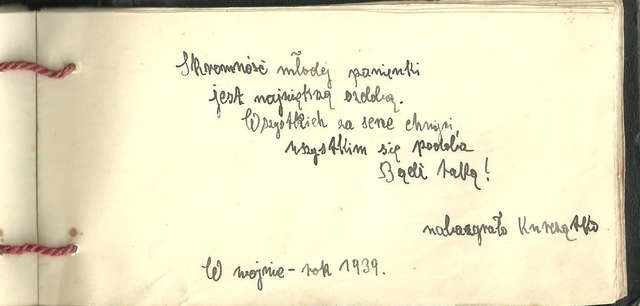 Skromność młodej panienki
jest największą ozdobą.
Wszystkich za serce chwyci,
wszystkim się podoba
Bądź taką!
nabazgrało Kurczątko
W wojnie - rok 1939.